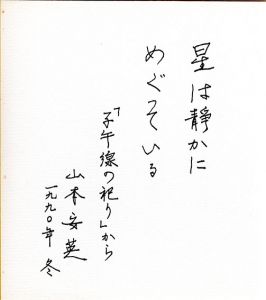 星は静かに
めぐっている
「子午線の祀り」から
山本安英
一九九〇年 冬